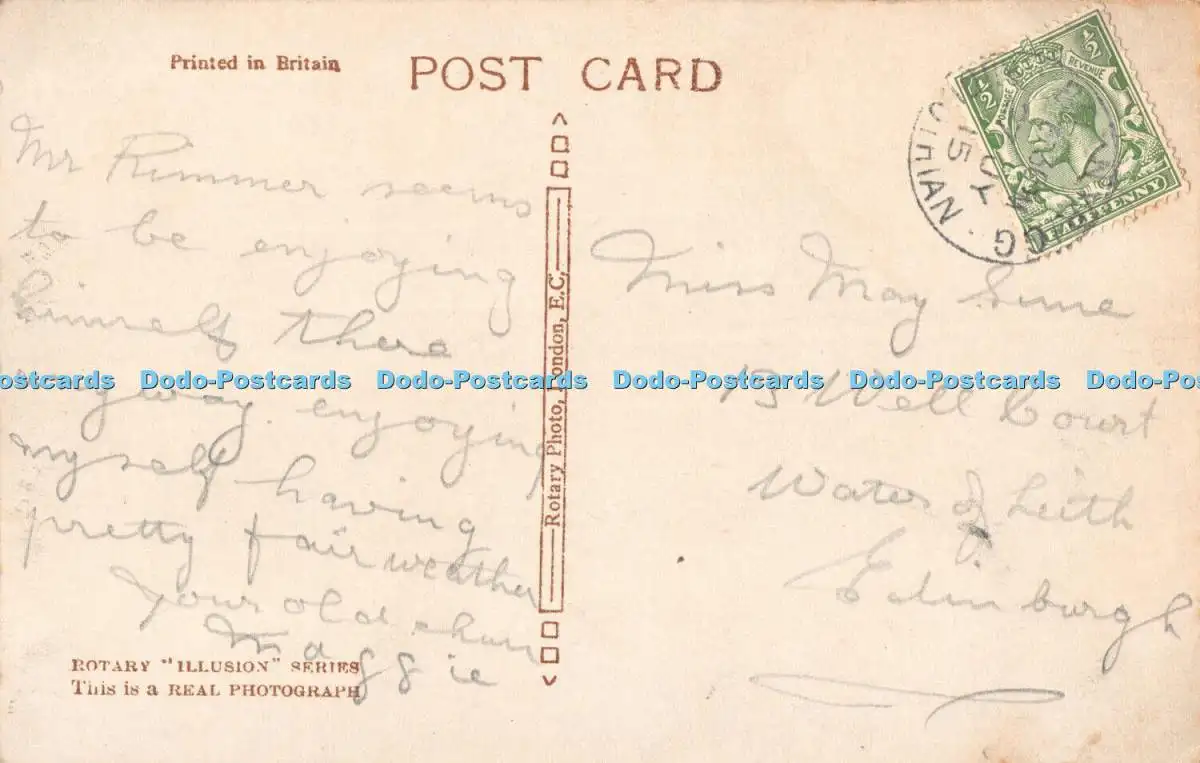 Printed in Britain
POST CARD
Mr Rimmer seems
to be enjoying
himself there
enjoying
myself having
pretty fair weather
Your old chum
Maggie
ROTARY "ILLUSION" SERIES
This is a REAL PHOTOGRAPH
Rotary Photo, London, E.C.
½ ½
POSTAGE REVENUE
HALFPENNY
15
Miss May Sime
13 Well Court
Water of Leith
Edinburgh
Dodo-Postcards Dodo-Postcards Dodo-Postcards Dodo-Postcards